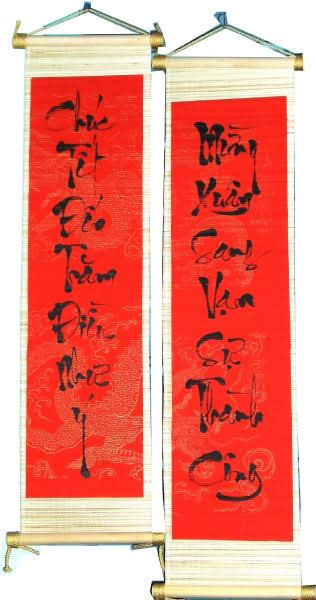 Chúc
Tết
Đến
Trăm
Điều
Như
Ý
Mừng
Xuân
Sang
Vạn
Sự
Thành
Công